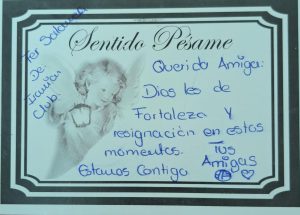 Sentido Pésame
De
Club.
Querida Amiga:
Dios les de
Fortaleza y
resignación en estos
momentos.
Tus
Amigas
Estamos Contigo